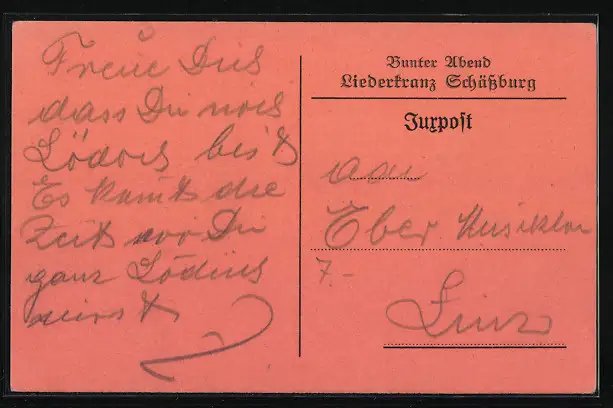 Freue Dich
dass Du noch
bist
Es kommt die
Zeit wo Du
ganz
wirst
Bunter Abend
Liederkranz Schäßburg
Juxpost
an
Eber
7.-
Linz